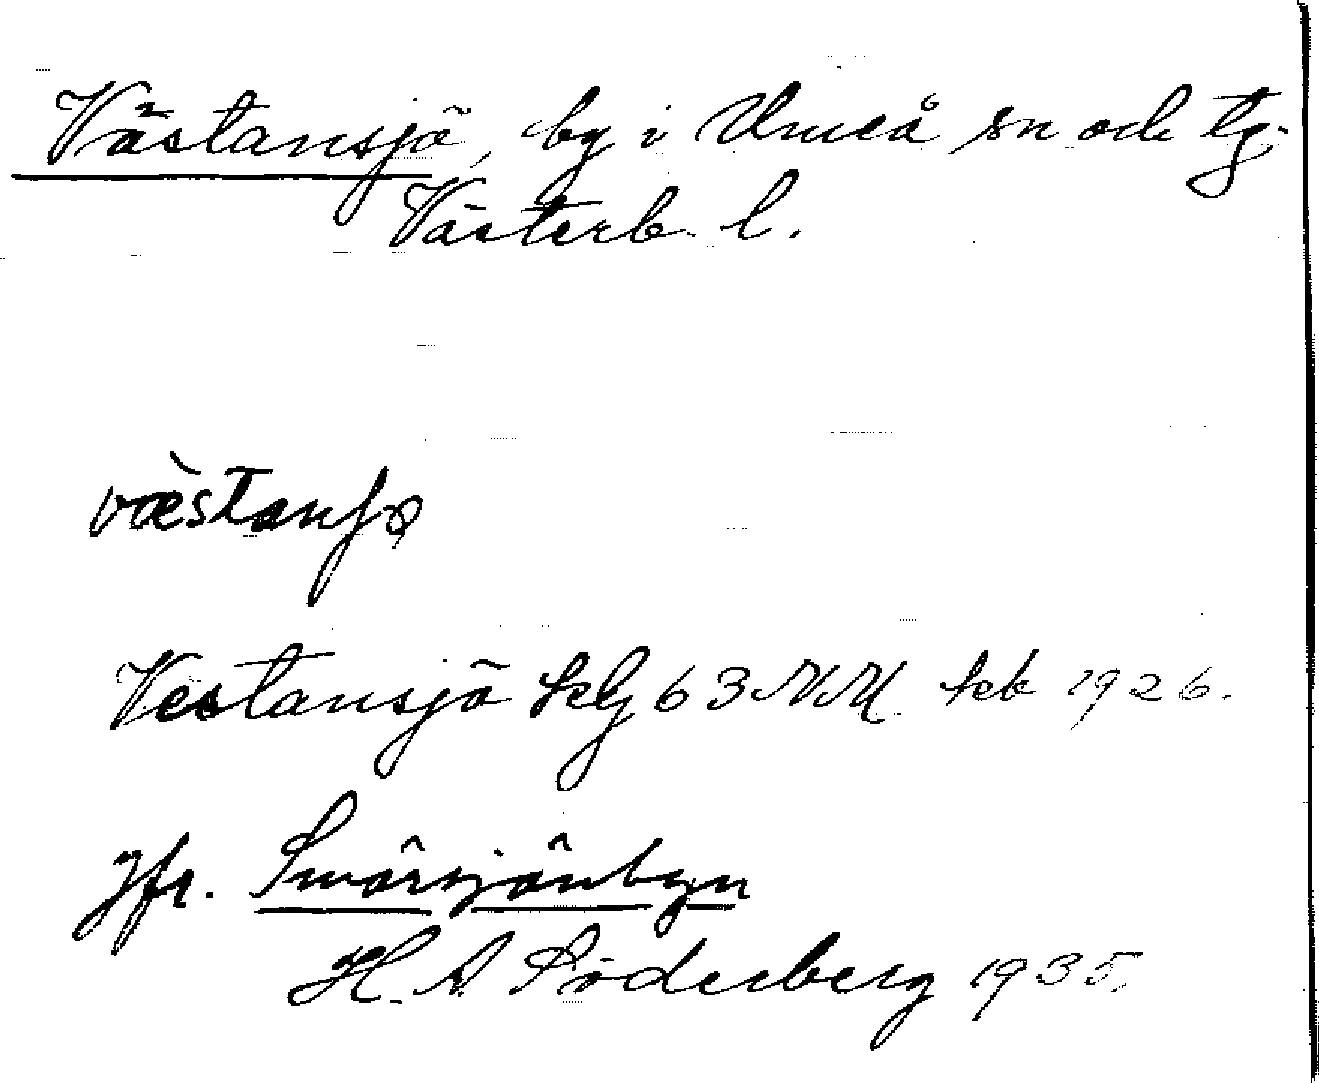 Västansjö, by i Umeå sn och tg.
Västerb. l.
væ̀stanʃø
Vestansjö Klg 63 NM feb 1926.
Jfr. Smörsjönbyn
H. A Söderberg 1935.